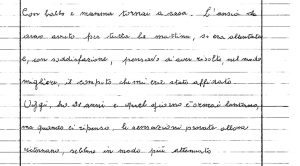 Con babbo e mamma tornai a casa. L'ansia che
avevo avuto per tutta la mattina, si era allentata
e, con soddisfazione, pensavo d'aver risolto, nel modo
migliore, il compito che mi era stato affidato.
Oggi, ho dieci anni e quel giorno è ormai lontano,
ma quando ci ripenso, le sensazioni provate allora
ritornano, sebbene in modo più attenuato